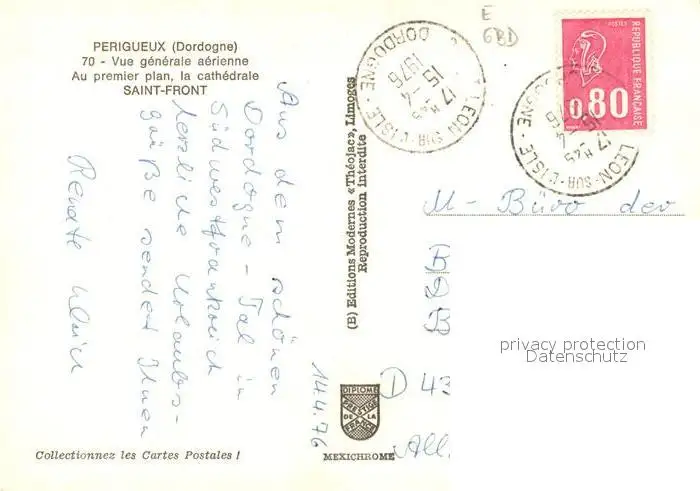 PERIGUEUX (Dordogne)
70 - Vue générale aérienne
Au premier plan, la cathédrale
SAINT-FRONT
Aus dem schönen
Dordogne-Tal in
Südwestfrankreich
herzliche Urlaubs-
grüße sendet Ihnen
Renate Ulrich
14.4.76
Collectionnez les Cartes Postales !
(B) Editions Modernes «Théojac», Limoges
Reproduction interdite
DIPLOME
PRESTIGE
DE LA
FRANCE
MEXICHROME
E
6BD
LEON-SUR-L'ISLE
DORDOGNE
17 H45
15-4
1976
POSTES
REPUBLIQUE FRANÇAISE
0,80
LEON-SUR-L'ISLE
17 H45
15-4
M- Büro der
D 43
All
privacy protection
Datenschutz